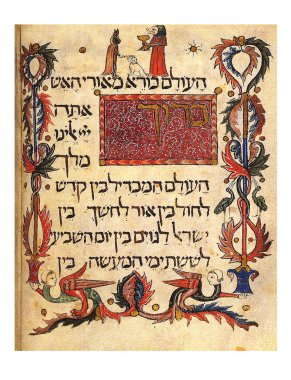 העולם בורא מאורי האש
ברוך
אתה
יי אלינו
מלך
העולם המבדיל בין קדש
לחול בין אור לחשך בין
ישראל לגוים בין יום השביעי
לששת ימי המעשה בין